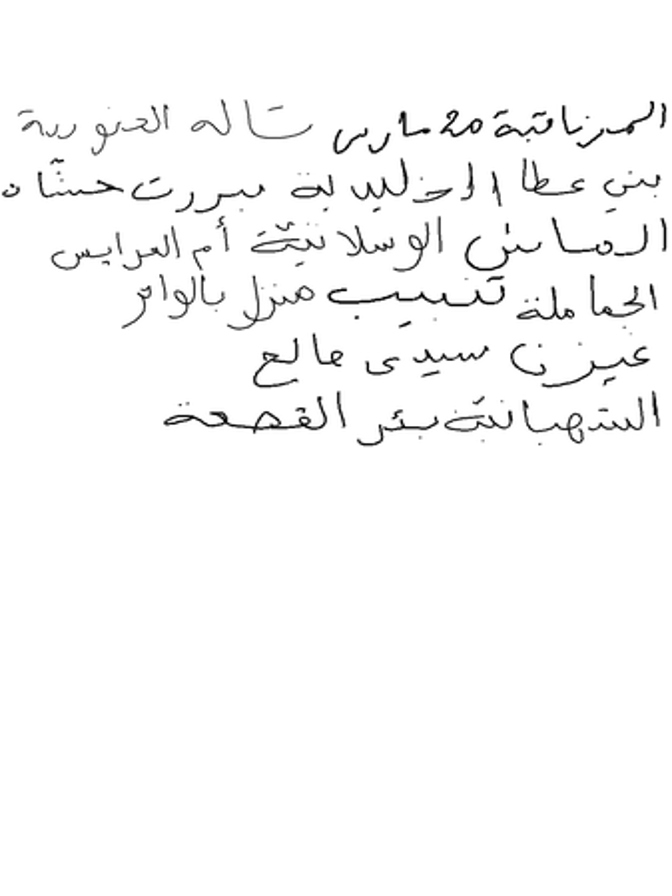 المرناقية 20 مارس شاله العنورية
بني عطا الاخليدية ببررت حشّاد
الماسني الوسلاتيّة أم العرايس
الجماملة تنبيب منزل بالوالي
عيزن سيدي صالح
الشهبانيّة بئر القصعة